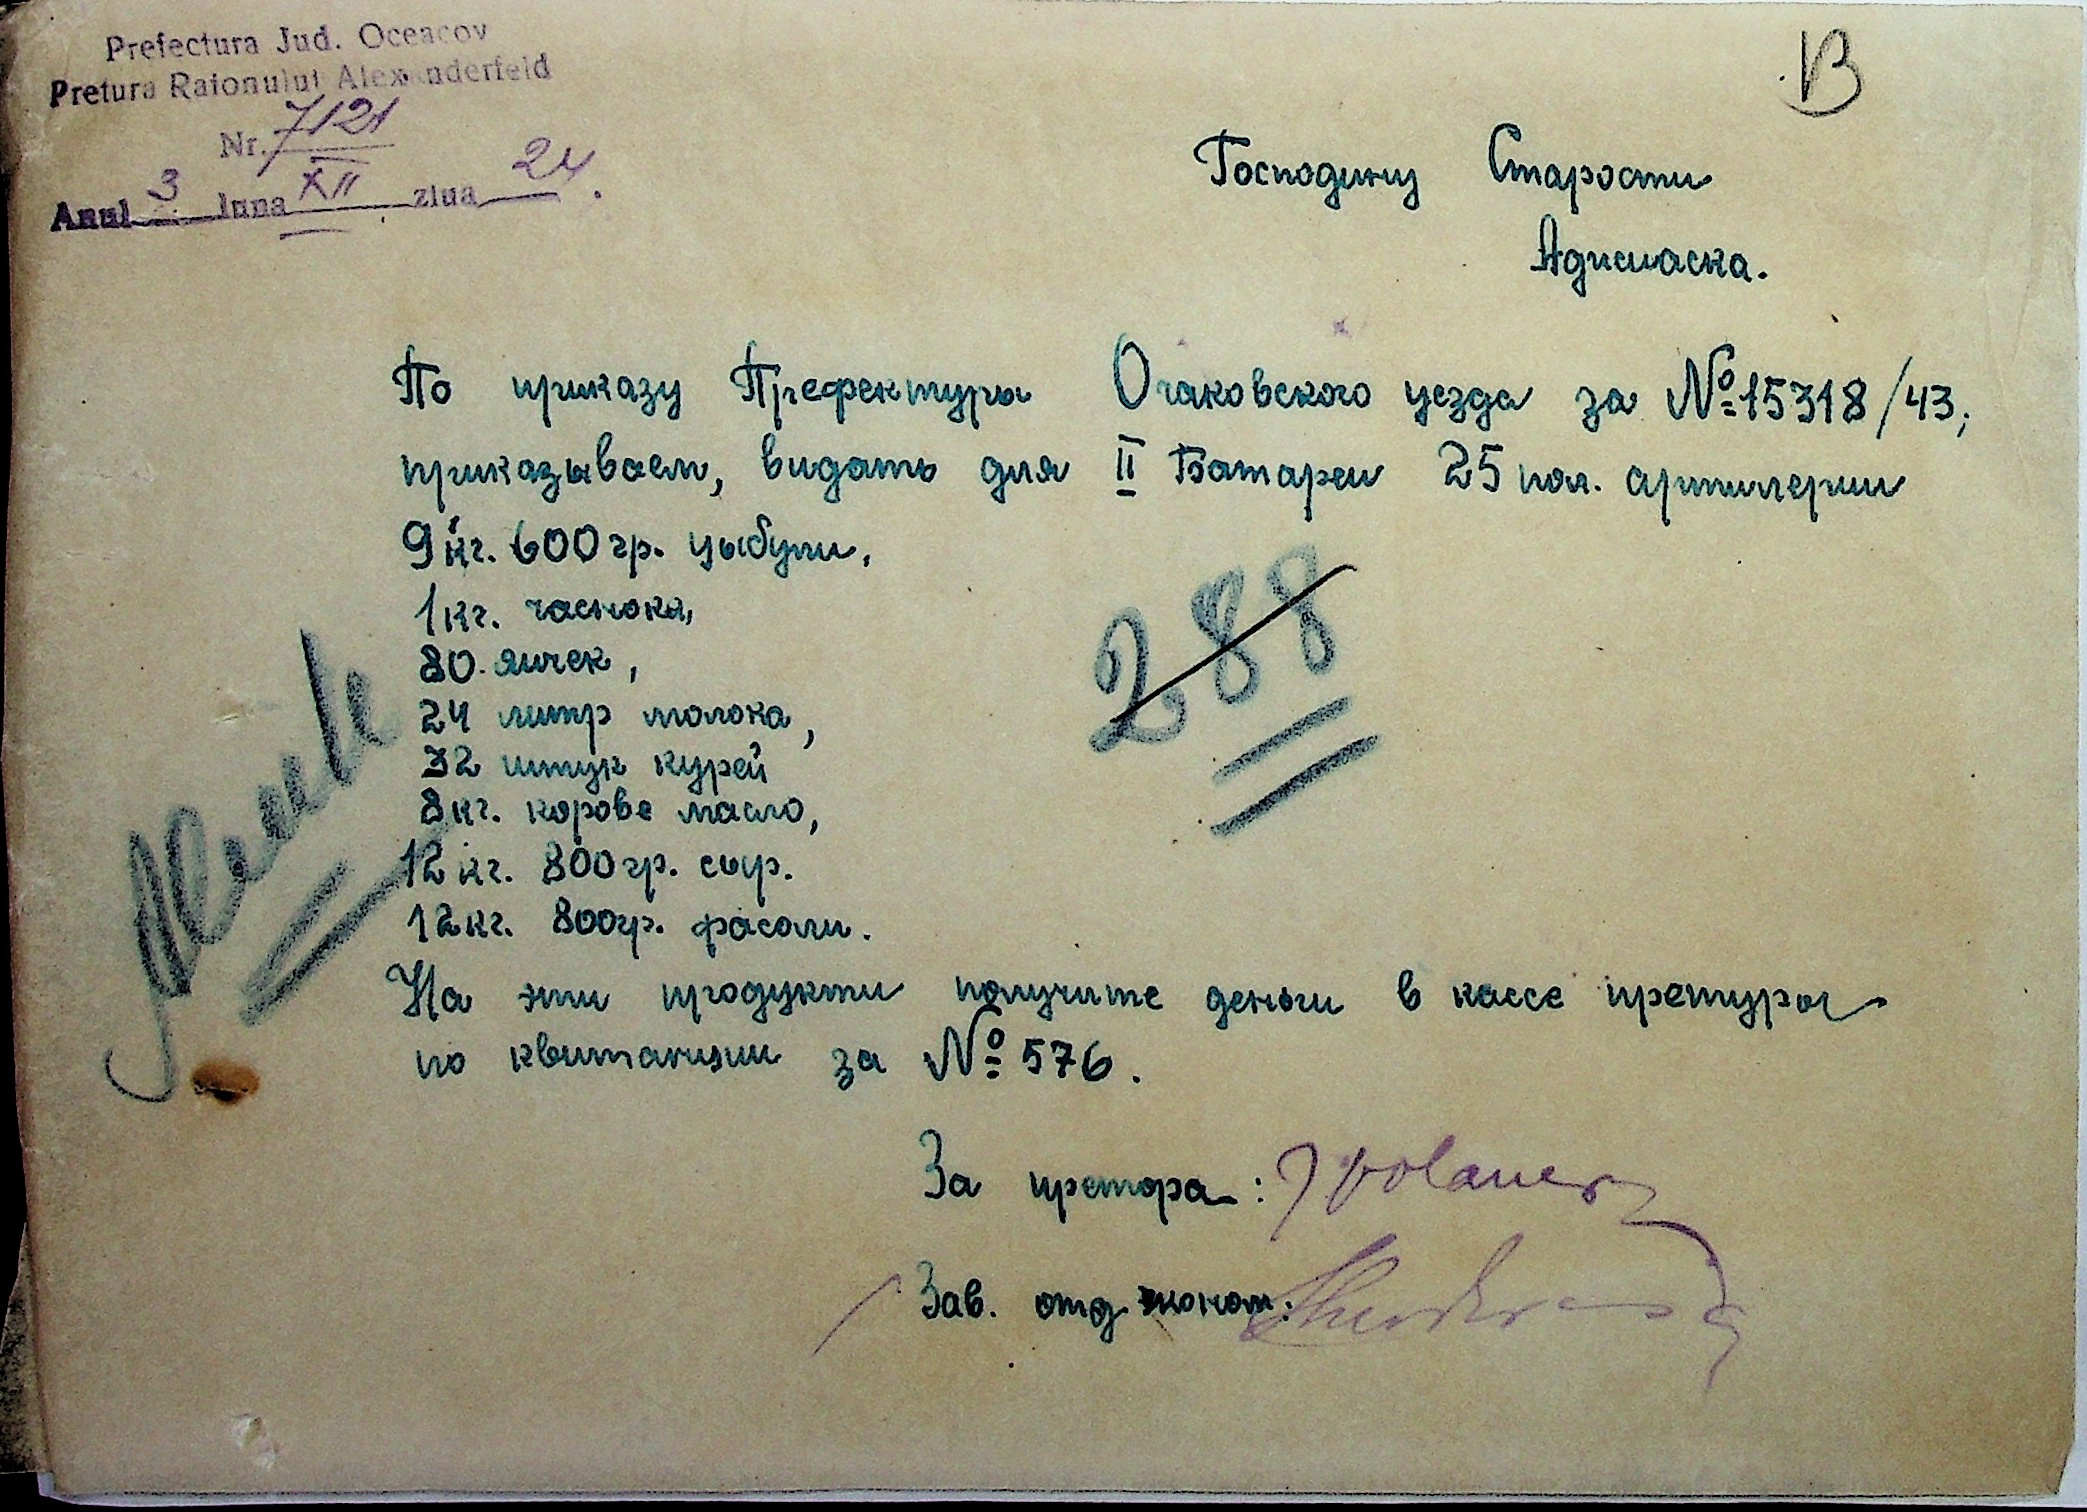 Prefectura Jud. Oceacov
Pretura Raionului Alexanderfeld
Nr. 7121
XII
Anul 3 luna XII ziua 24.
В
Господину Старости
Адисиаска.
По приказу Префектуры Очаковского уезда за № 15318/43;
приказываем, видать для II Батареи 25 пол. артилерии
9 кг. 600 гр. цыбули,
1 кг. часнока,
80 яичек,
24 литр молока,
32 штук курей
8 кг. корове масло,
12 кг. 800 гр. сыр.
12 кг. 800 гр. фасоли.
288
На эти продукти получите деньги в кассе претуры
по квитанции за № 576.
За претора:
Зав. отд эконом: